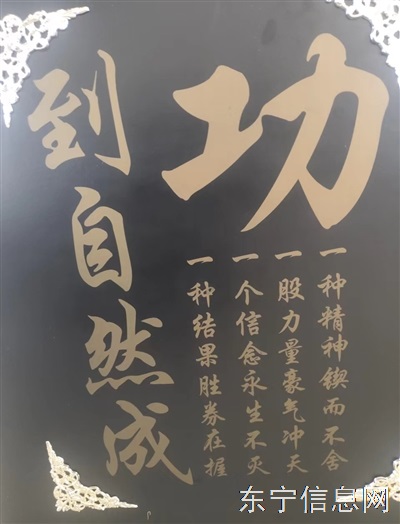 功
到自然成
一种精神锲而不舍
一股力量豪气冲天
一个信念永生不灭
一种结果胜券在握
东宁信息网